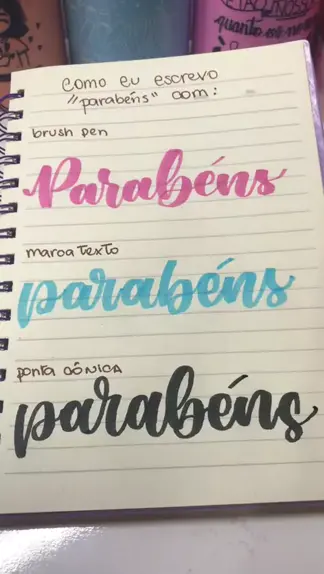 quanto eu no
como eu escrevo
"parabéns" com:
brush pen
Parabéns
marca texto
parabéns
ponta cônica
parabéns